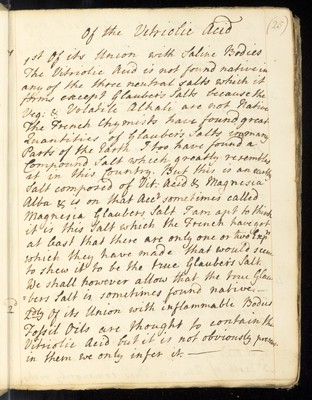 (25)
Of the Vitriolic Acid
1st Of its Union with Saline Bodies
The Vitriolic Acid is not found native in
any of the three neutral Salts which it
forms except Glaubers Salts because the
Veg: & Volatile Alkali are not Native
The French Chymists have found great
Quantities of Glaubers Salts in many
Parts of the Earth I too have found a
Compound Salt which greatly resembles
it in this Country. But this is an
Salt composed of Vit: Acid & Magnesia
Alba & is on that Acct sometimes called
Magnesia Glaubers Salt I am apt to think
it is this Salt which the French have
at least that there are only one or two Expts
which they have made that would seem
to shew it to be the true Glaubers Salt
We shall however allow that the true Glau
bers Salt is sometimes found native.
2
2dly Of its Union with inflammable Bodies
Fossil Oils are thought to contain the
Vitriolic Acid but it is not obviously
in them we only infer it